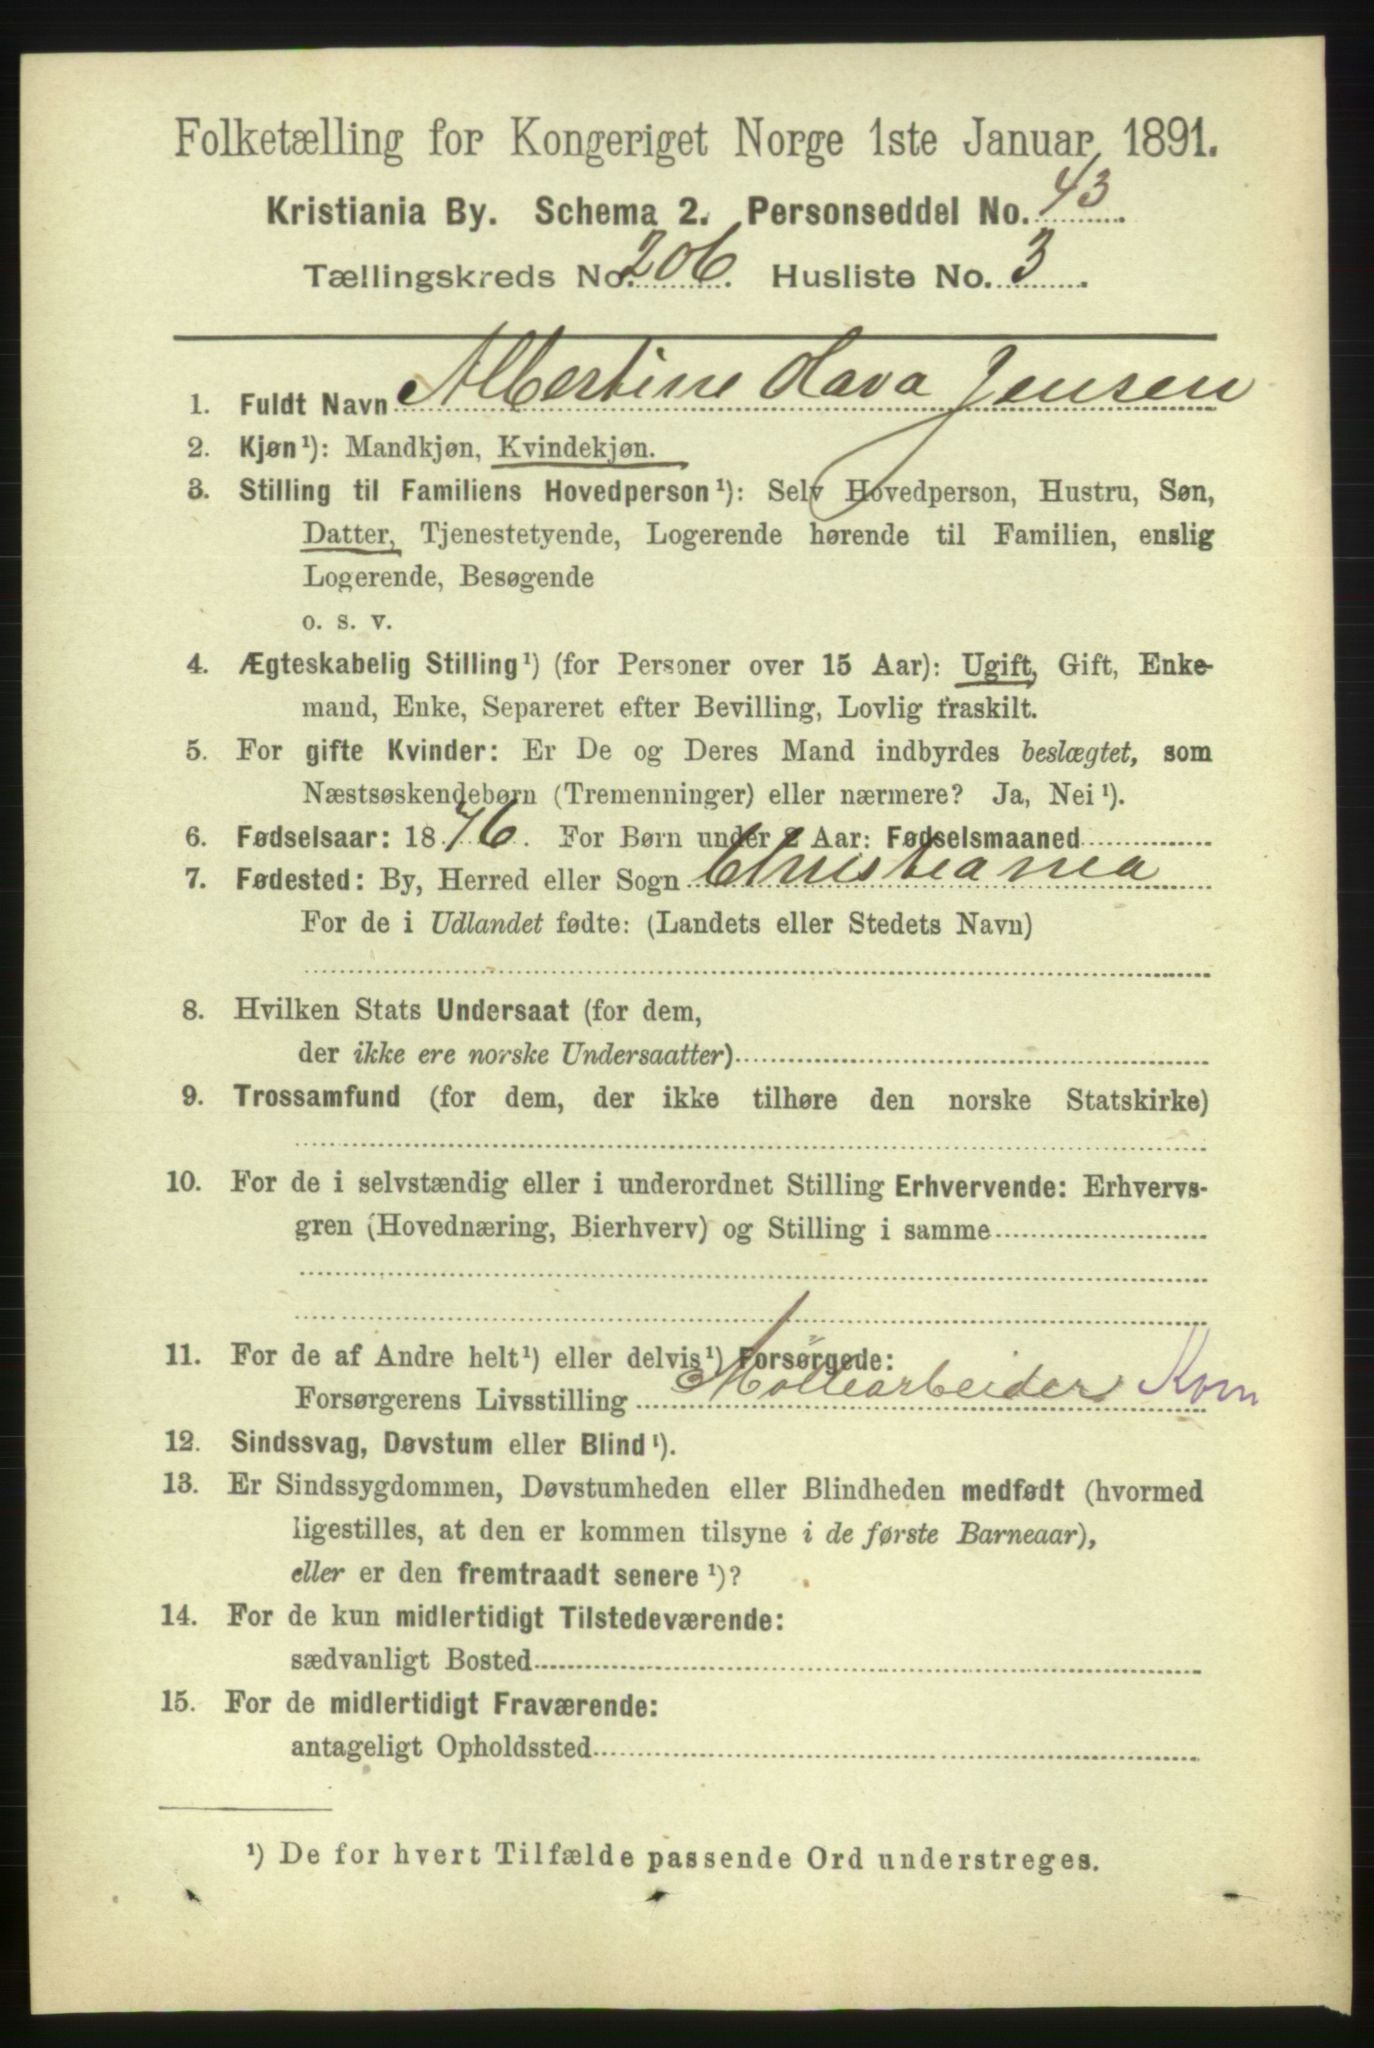 Folketælling for Kongeriget Norge 1ste Januar 1891.
Kristiania By. Schema 2. Personseddel No. 43.
Tællingskreds No. 206. Husliste No. 3.
1. Fuldt Navn Albertine Hava Jensen
2. Kjøn¹): Mandkjøn, Kvindekjøn.
3. Stilling til Familiens Hovedperson¹): Selv Hovedperson, Hustru, Søn,
Datter, Tjenestetyende, Logerende hørende til Familien, enslig
Logerende, Besøgende
o. s. v.
4. Ægteskabelig Stilling¹) (for Personer over 15 Aar): Ugift, Gift, Enke-
mand, Enke, Separeret efter Bevilling, Lovlig fraskilt.
5. For gifte Kvinder: Er De og Deres Mand indbyrdes beslægtet, som
Næstsøskendebørn (Tremenninger) eller nærmere? Ja, Nei¹).
6. Fødselsaar: 1876. For Børn under 2 Aar: Fødselsmaaned
7. Fødested: By, Herred eller Sogn Christiania
For de i Udlandet fødte: (Landets eller Stedets Navn)
8. Hvilken Stats Undersaat (for dem,
der ikke ere norske Undersaatter)
9. Trossamfund (for dem, der ikke tilhøre den norske Statskirke)
10. For de i selvstændig eller i underordnet Stilling Erhvervende: Erhvervs-
gren (Hovednæring, Bierhverv) og Stilling i samme
11. For de af Andre helt¹) eller delvis¹) Forsørgede:
Forsørgerens Livsstilling Møllearbeider Korn
12. Sindssvag, Døvstum eller Blind¹).
13. Er Sindssygdommen, Døvstumheden eller Blindheden medfødt (hvormed
ligestilles, at den er kommen tilsyne i de første Barneaar),
eller er den fremtraadt senere¹)?
14. For de kun midlertidigt Tilstedeværende:
sædvanligt Bosted
15. For de midlertidigt Fraværende:
antageligt Opholdssted
¹) De for hvert Tilfælde passende Ord understreges.